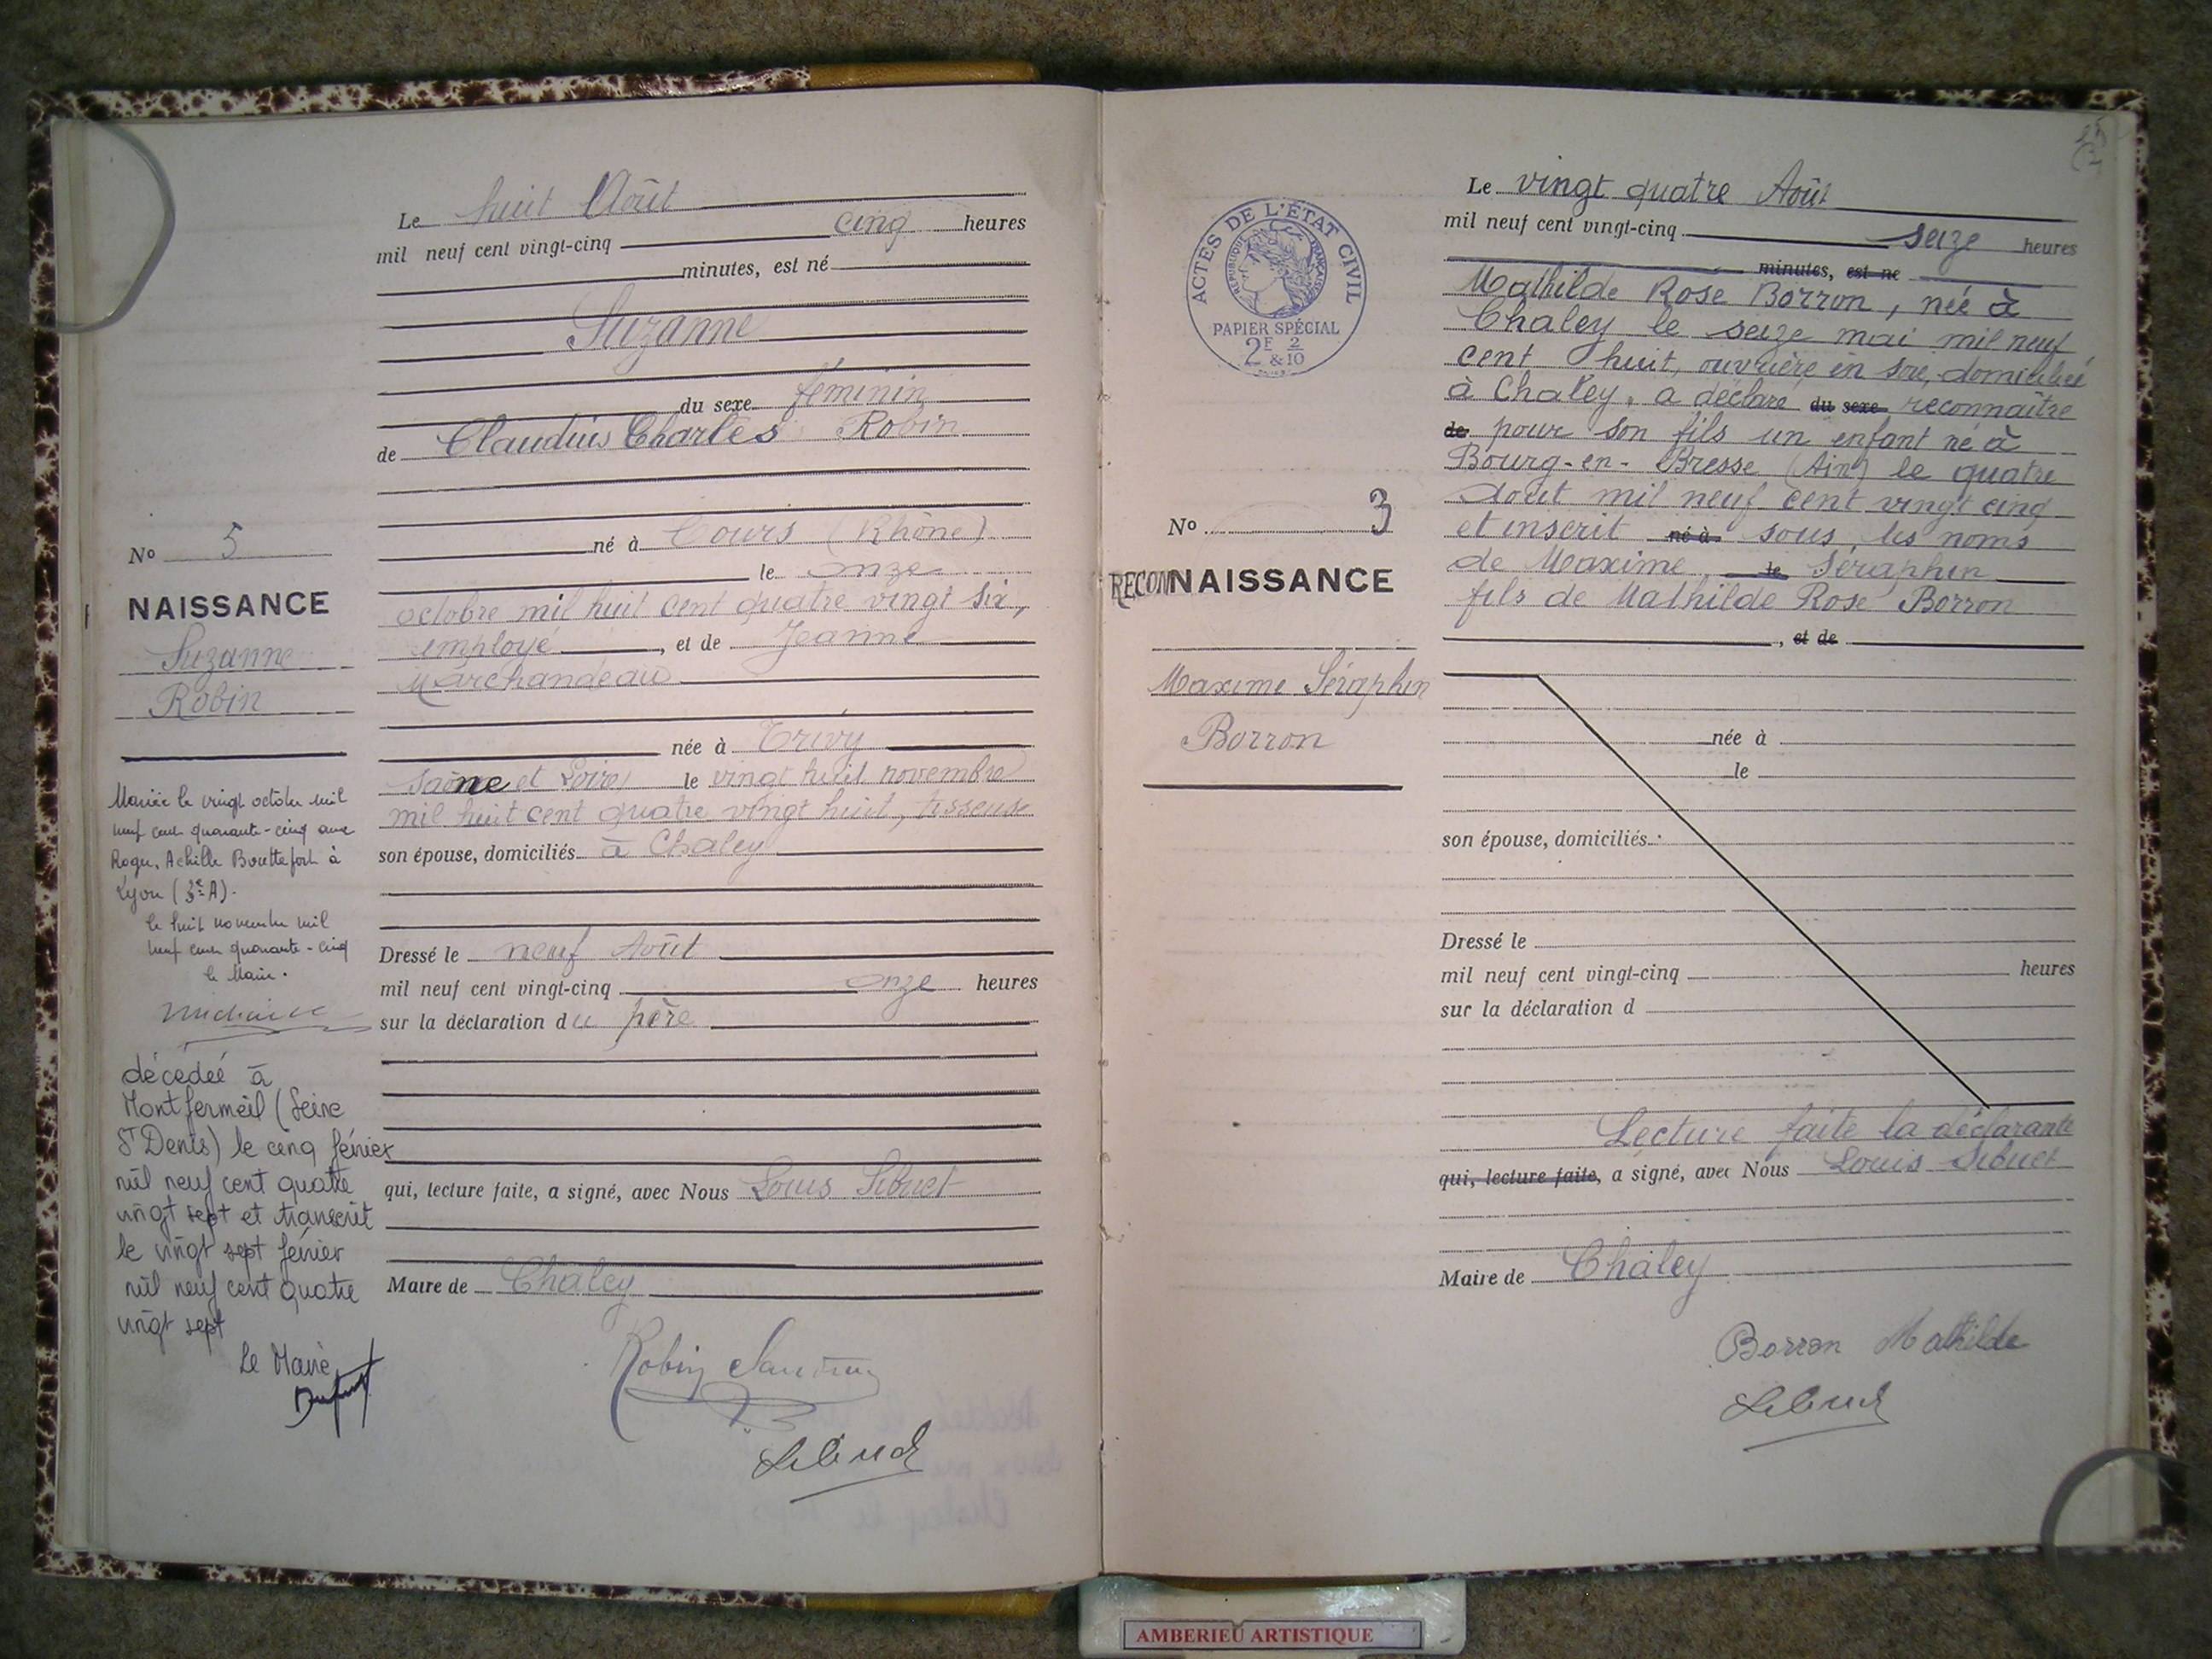 Le huit Août
mil neuf cent vingt-cinq cinq heures
minutes, est né
Suzanne
du sexe féminin
de Claudius Charles Robin
né à Cours (Rhône)
le onze
octobre mil huit cent quatre vingt six,
employé, et de Jeanne
Marchandeau
née à Trivy
Saône et Loire le vingt huit novembre
mil huit cent quatre vingt huit, tisseuse
son épouse, domiciliés à Chaley
Dressé le neuf Août
mil neuf cent vingt-cinq onze heures
sur la déclaration du père
qui, lecture faite, a signé, avec Nous Louis Sibuet
Maire de Chaley
Robin
Sibuet
No 5
NAISSANCE
Suzanne
Robin
Mariée le vingt octobre mil
neuf cent quarante-cinq avec
Roger, Achille Bouttefort à
Lyon (3e A).
le huit novembre mil
neuf cent quarante-cinq
le Maire.
décédée à
Montfermeil (Seine
St Denis) le cinq février
mil neuf cent quatre
vingt sept et transcrit
le vingt sept février
mil neuf cent quatre
vingt sept
Le Maire
ACTES DE L'ÉTAT CIVIL
RÉPUBLIQUE FRANÇAISE
PAPIER SPÉCIAL
2F 2/10
&
No 3
RECONNAISSANCE
Maxime Séraphin
Borron
Le vingt quatre Août
mil neuf cent vingt-cinq seize heures
minutes, est né
Mathilde Rose Borron, née à
Chaley le seize mai mil neuf
cent huit, ouvrière en soie, domiciliée
à Chaley, a déclaré du sexe reconnaître
de pour son fils un enfant né à
Bourg-en-Bresse (Ain) le quatre
Août mil neuf cent vingt cinq
et inscrit né à sous les noms
de Maxime le Séraphin
fils de Mathilde Rose Borron
, et de
née à
le
son épouse, domiciliés
Dressé le
mil neuf cent vingt-cinq heures
sur la déclaration d
Lecture faite la déclarante
qui, lecture faite, a signé, avec Nous Louis Sibuet
Maire de Chaley
Borron Mathilde
Sibuet
AMBERIEU ARTISTIQUE